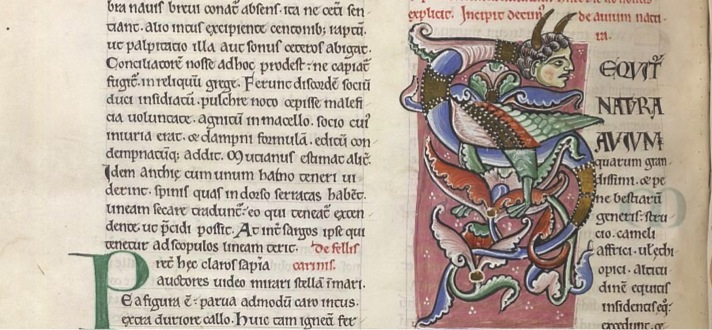 bra navis brevi conat͛ absens. ita ne ceti͂ sen
tiant. alio intus excipiente centomb; raptu͂.
ut palpitatio illa aut sonus ceteros abigat.
Conciliatore͂ nosse adhoc prodest: ne capiat͛
fugit. in reliqui͂ grege. Ferunt discorde͂ sociu͂
duci insidiatu͂. pulchre noto cepisse malefi
cia voluntate. agnitu͂ in macello. socio cui͛
iniuria erat. & da͂pni formula͂. editu͂ con
dempnatu͂q; addit. Mutianus estimat͛ alic͛
Idem anthie cum unum hamo teneri vi
derint. spinis quas in dorso serratas habe͂t.
lineam secare tradunt͛: eo qui teneat͛ exten
dente. ut p͛cidi possit. At int͛ sargos ipse qui
tenetur ad scopulos lineam terit. De stellis
Preter hec claros sapi͂a marinis.
auctores video mirari stella͂ i͂ mari.
Ea figura e͂: parva admodu͂ caro intus.
extra duriore callo. Huic tam ignea͂ fer
explicit. Incipit decim͛ de avium natu
ra.
EQUIT͛
NATURA
AVIUM
quarum gran
dissimi. & pe
ne bestiaru͂
generis: stru
cio. cameli
affrici. vel ethi
opici. altitu
dine͂ equitis
insidentis eq͛;
excedunt. &